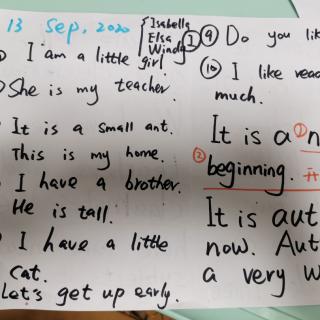 13 Sep, 2020
Isabella
Elsa
Windy
I am a little girl.
She is my teacher.
It is a small ant.
This is my home.
I have a brother.
He is tall.
I have a little
cat.
Let's get up early.
⑨ Do you
⑩ I like
much.
It is a
① ②
beginning.
It is
now.
a very